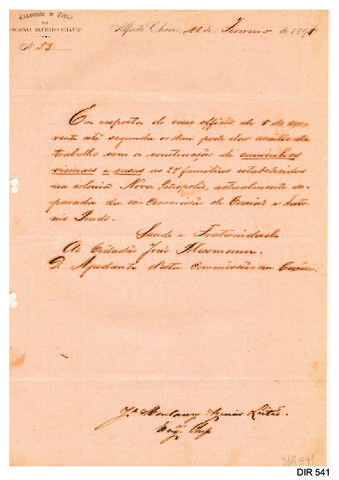 Commissão de Terras
DA
COLONIA ALFREDO CHAVES
N. 53
Alfredo Chaves, 12 de Fevereiro de 1891
Em resposta do vosso officio de 8 do cor-
rente até segunda ordem pode dar
trabalho com a construcção de caminhos
vicinaes e casas as 29 familias estabelecidas
na colonia Nova Petropolis, actualmente se-
parada da Commissão de Caxias e Anto-
nio Prado.
Saude e Fraternidade
Ao Cidadão José
D. Ajudante desta Commissão em Caxias
Jº Montaury Aguiar Leitão
Engº Chefe
DIR 541
DIR 541